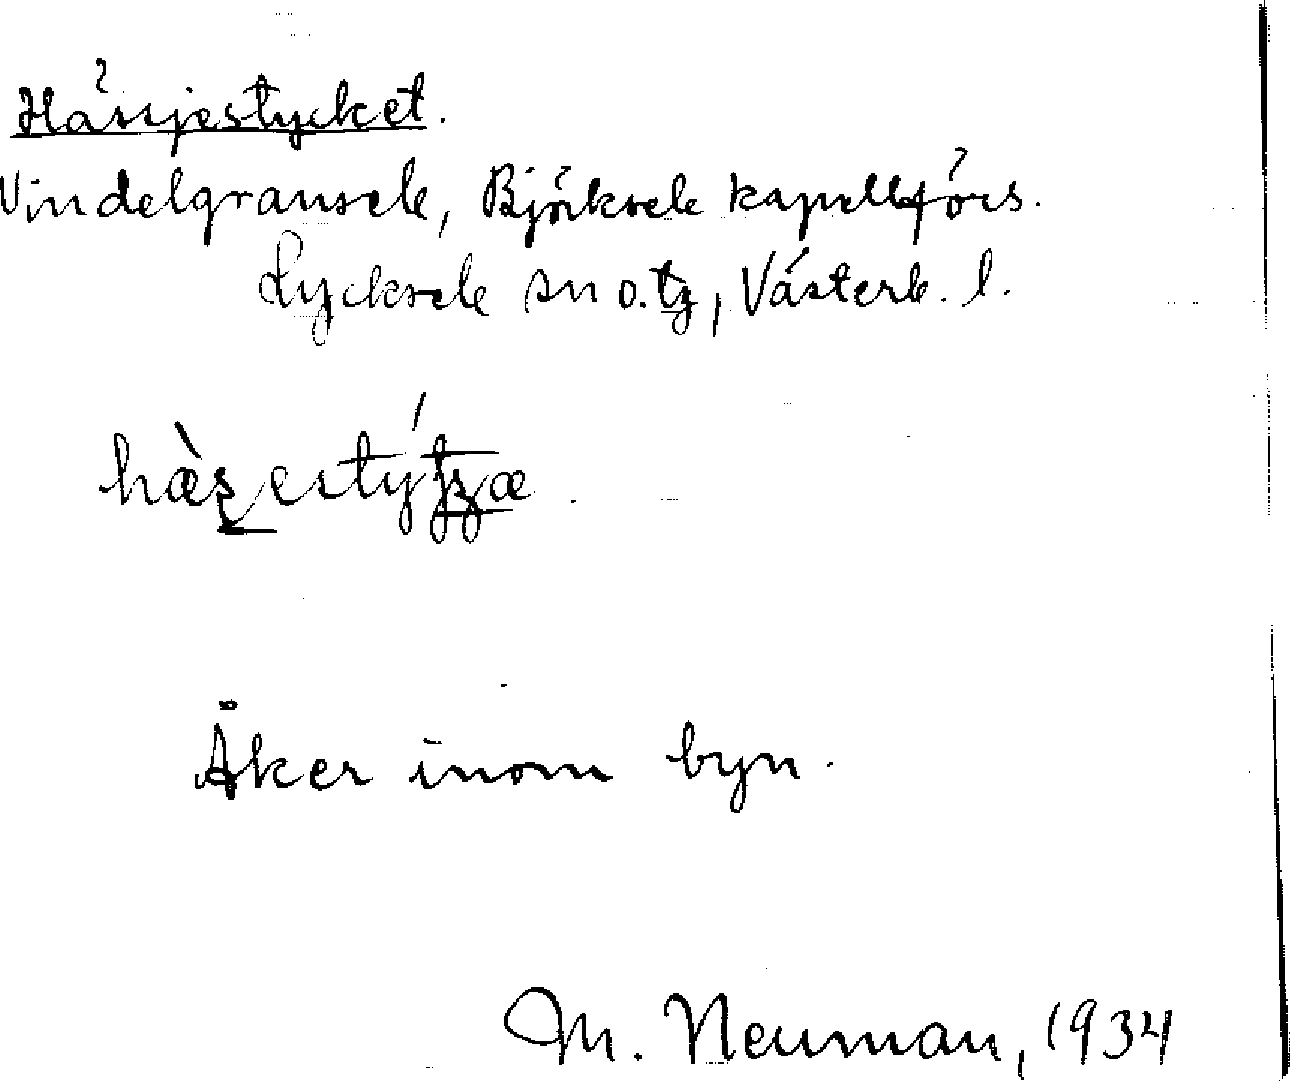 Hässjestycket.
Vindelgransele, Björksele kapellförs.
Lycksele sn o. tg, Västerb. l.
Åker inom byn.
M. Neuman, 1934